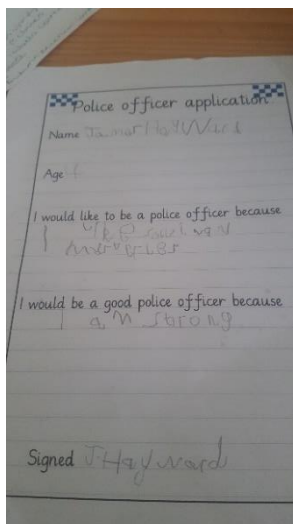 Police officer application
Name James HayWard
Age
I would like to be a police officer because
I like
I would be a good police officer because
I am strong
Signed J.Hayward